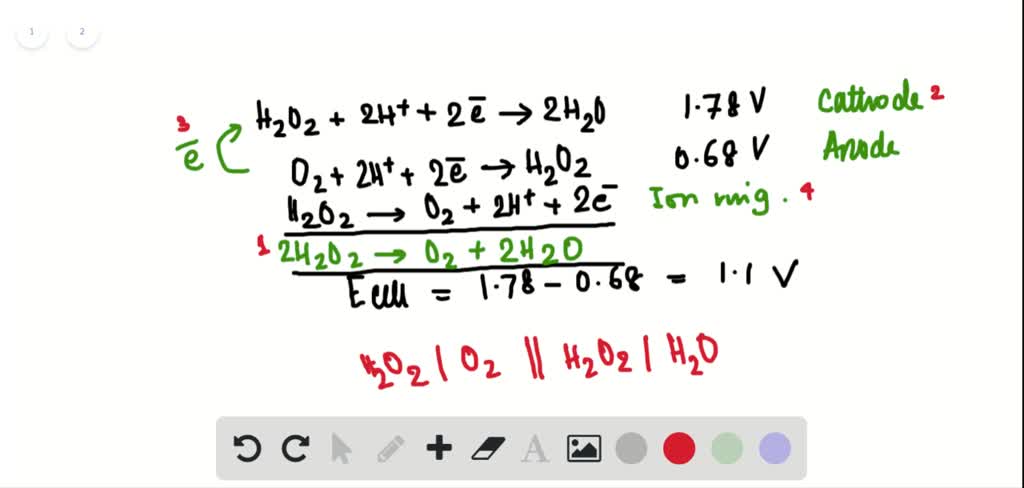 1 2
H₂O₂ + 2H⁺ + 2e̅ → 2H₂O 1.78 V Cathode 2
3 e̅ O₂ + 2H⁺ + 2e̅ → H₂O₂ 0.68 V Anode
H₂O₂ → O₂ + 2H⁺ + 2e⁻ Ion mig. 4
1 2H₂O₂ → O₂ + 2H2O
Ecell = 1.78 – 0.68 = 1.1 V
H₂O₂ | O₂ || H₂O₂ | H₂O
A